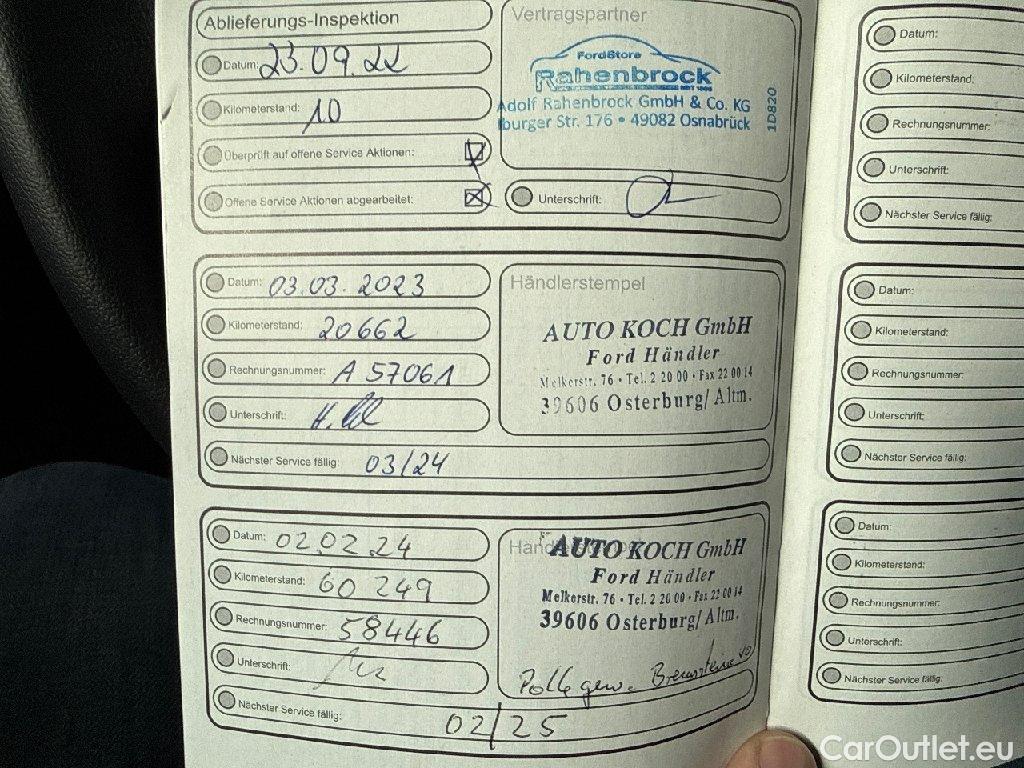 Ablieferungs-Inspektion
Datum: 23.09.22
Kilometerstand: 10
Überprüft auf offene Service Aktionen:
Offene Service Aktionen abgearbeitet:
Vertragspartner
FordStore
Rahenbrock
Adolf Rahenbrock GmbH & Co. KG
Iburger Str. 176 • 49082 Osnabrück
1D820
Unterschrift:
Datum: 03.03.2023
Kilometerstand: 20662
Rechnungsnummer: A 57061
Unterschrift:
Nächster Service fällig: 03/24
Händlerstempel
AUTO KOCH GmbH
Ford Händler
Melkerstr. 76 • Tel. 2 20 00 • Fax 22 00 14
39606 Osterburg/Altm.
Datum: 02.02.24
Kilometerstand: 60 249
Rechnungsnummer: 58446
Unterschrift:
Nächster Service fällig: 02/25
AUTO KOCH GmbH
Ford Händler
Melkerstr. 76 • Tel. 2 20 00 • Fax 22 00 14
39606 Osterburg/Altm.
Datum:
Kilometerstand:
Rechnungsnummer:
Unterschrift:
Nächster Service fällig:
Datum:
Kilometerstand:
Rechnungsnummer:
Unterschrift:
Nächster Service fällig:
Datum:
Kilometerstand:
Rechnungsnummer:
Unterschrift:
Nächster Service fällig:
CarOutlet.eu